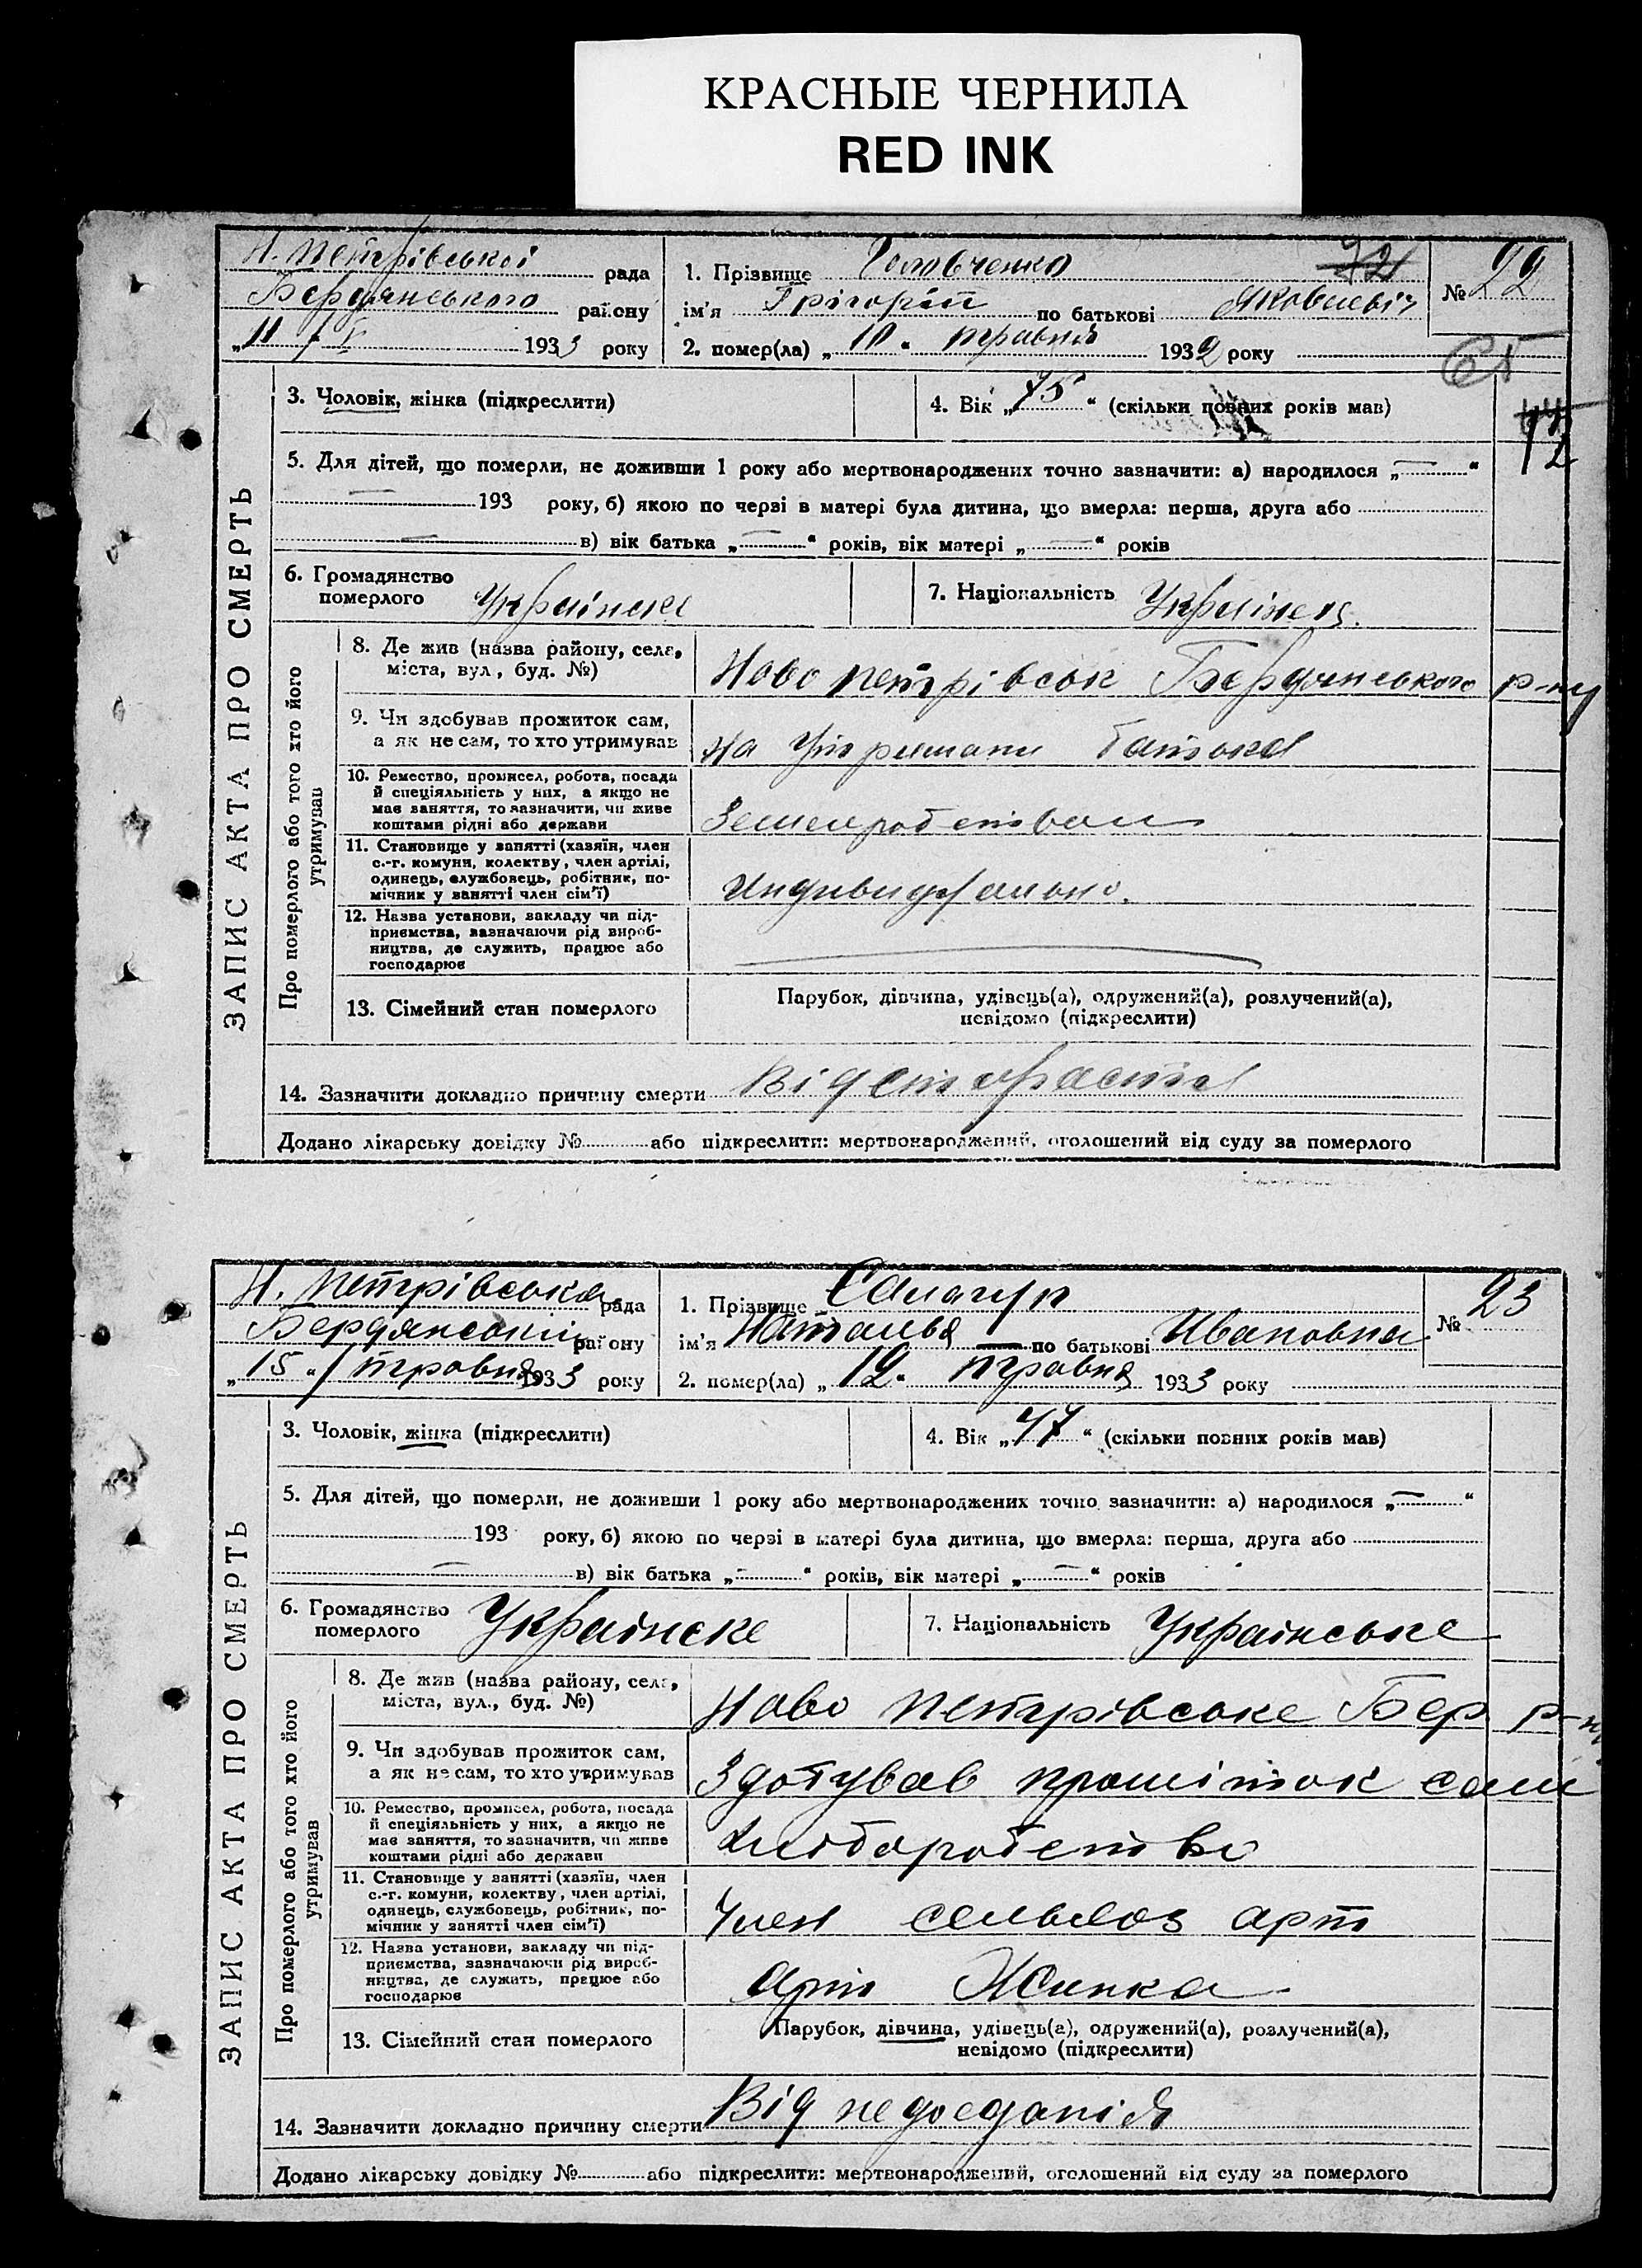 КРАСНЫЕ ЧЕРНИЛА
RED INK
Н. Петрівської рада
Бердянського району
„11 / V 1933 року
1. Прізвище Головченко 72
ім'я Грігорій по батькові Яковлевіч
2. помер(ла) „10" травня 1932 року
№ 22
3. Чоловік, жінка (підкреслити)
4. Вік „75" (скільки повних років мав)
72
5. Для дітей, що померли, не доживши 1 року або мертвонароджених точно зазначити: а) народилося „—"
— 193 року, б) якою по черзі в матері була дитина, що вмерла: перша, друга або
— в) вік батька „—" років, вік матері „—" років
6. Громадянство померлого
7. Національність Українец.
ЗАПИС АКТА ПРО СМЕРТЬ
Про померлого або того хто його утримував
8. Де жив (назва району, села, міста, вул., буд. №) Ново петрівськ Бердянського р-ну
9. Чи здобував прожиток сам, а як не сам, то хто утримував На утримани батька
10. Ремество, промисел, робота, посада й спеціяльність у них, а якщо не має заняття, то зазначити, чи живе коштами рідні або держави
11. Становище у занятті (хазяїн, член с.-г. комуни, колектву, член артілі, одинець, службовець, робітник, помічник у занятті член сім'ї)
12. Назва установи, закладу чи підприємства, зазначаючи рід виробництва, де служить, працює або господарює —
13. Сімейний стан померлого
Парубок, дівчина, удівець(а), одружений(а), розлучений(а),
невідомо (підкреслити)
14. Зазначити докладно причину смерти Від старости
Додано лікарську довідку № або підкреслити: мертвонароджений, оголошений від суду за померлого
Н. Петрівська рада
Бердянський району
„15" / травня 1933 року
1. Прізвище
ім'я Наталья по батькові Ивановна
2. помер(ла) „12" травня 1933 року
№ 23
3. Чоловік, жінка (підкреслити)
4. Вік „47" (скільки повних років мав)
5. Для дітей, що померли, не доживши 1 року або мертвонароджених точно зазначити: а) народилося „—"
193 року, б) якою по черзі в матері була дитина, що вмерла: перша, друга або
— в) вік батька „—" років, вік матері „—" років
6. Громадянство померлого Українске
7. Національність Українське
ЗАПИС АКТА ПРО СМЕРТЬ
Про померлого або того хто його утримував
8. Де жив (назва району, села, міста, вул., буд. №) Ново петрівське Бер р-ну
9. Чи здобував прожиток сам, а як не сам, то хто утримував Здобував прожіток сам
10. Ремество, промисел, робота, посада й спеціяльність у них, а якщо не має заняття, то зазначити, чи живе коштами рідні або держави хліборобство
11. Становище у занятті (хазяїн, член с.-г. комуни, колектву, член артілі, одинець, службовець, робітник, помічник у занятті член сім'ї) Член сельхоз арт
12. Назва установи, закладу чи підприємства, зазначаючи рід виробництва, де служить, працює або господарює Арт
13. Сімейний стан померлого
Парубок, дівчина, удівець(а), одружений(а), розлучений(а),
невідомо (підкреслити)
14. Зазначити докладно причину смерти Від недоеданія
Додано лікарську довідку № або підкреслити: мертвонароджений, оголошений від суду за померлого